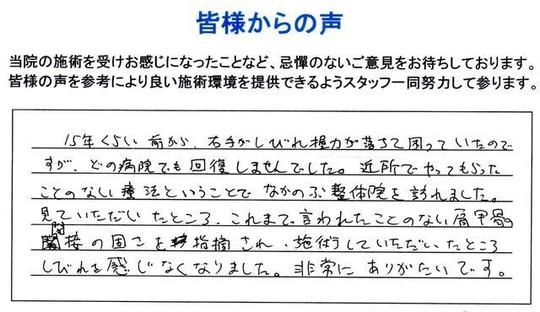 皆様からの声
当院の施術を受けお感じになったことなど、忌憚のないご意見をお待ちしております。
皆様の声を参考により良い施術環境を提供できるようスタッフ一同努力して参ります。
15年くらい前から、右手がしびれ握力が落ちて困っていたので
すが、どの病院でも回復しませんでした。近所でやってもらった
ことのない療法ということでなかのぶ整体院を訪れました。
見ていただいたところ、これまで言われたことのない肩甲骨の
関接の固さを指摘され、施術していただいたところ
しびれを感じなくなりました。非常にありがたいです。